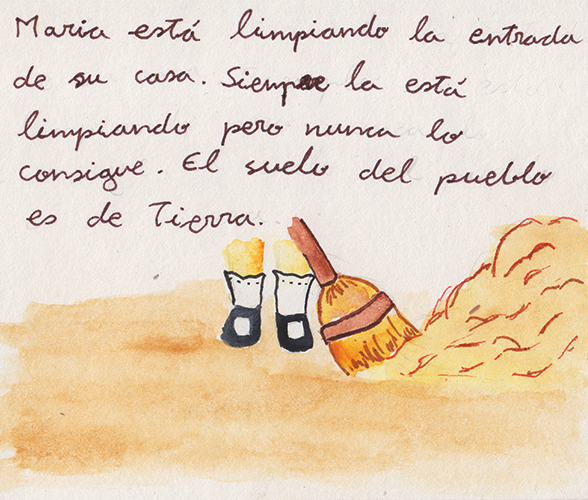 Maria está limpiando la entrada
de su casa. Siempre la está
limpiando pero nunca lo
consigue. El suelo del pueblo
es de Tierra.